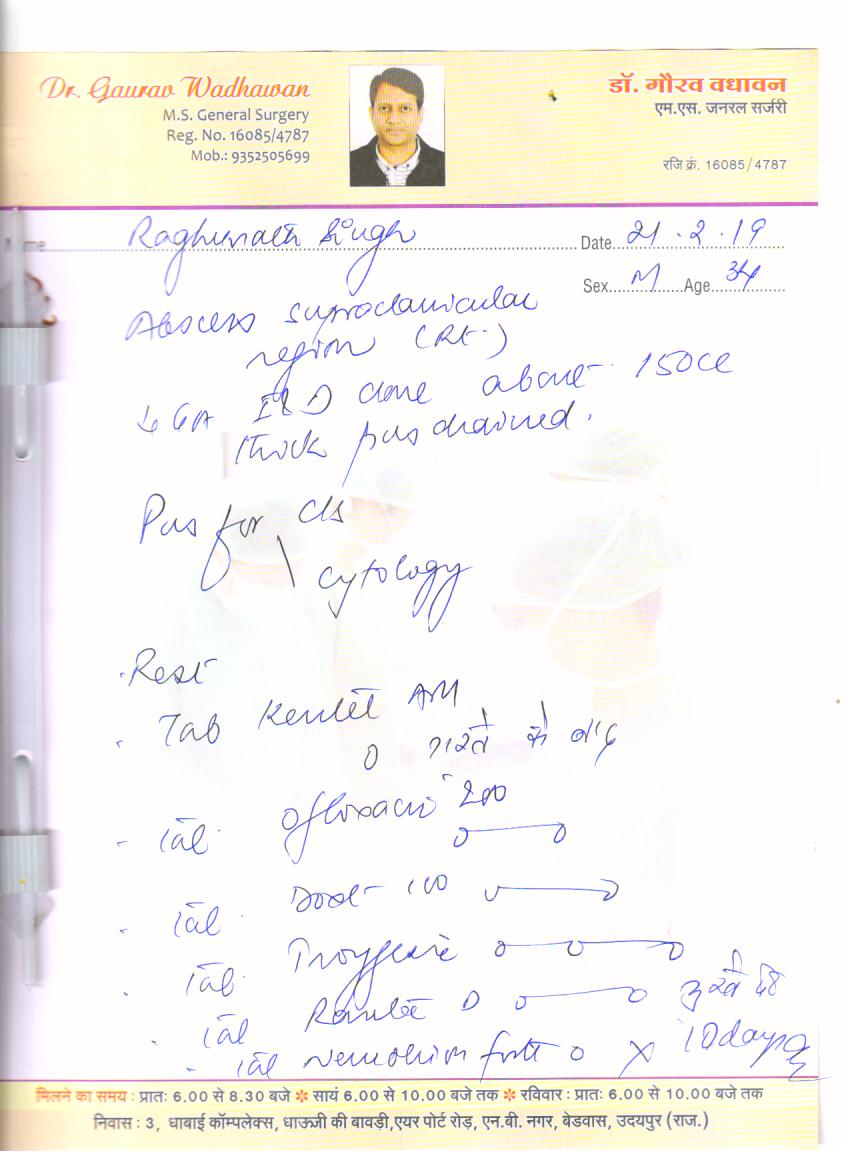 Dr. Gaurav Wadhawan
M.S. General Surgery
Reg. No. 16085/4787
Mob.: 9352505699
डॉ. गौरव वधावन
एम.एस. जनरल सर्जरी
रजि क्रं. 16085/4787
Name Raghunath Singh Date 21.2.19
Sex M Age 34
Abscess supraclavicular
region (Rt.)
GA I & D done about 150cc
thick pus drained.
Pus for C/s
cytology
Rest
Tab AM
0 के बाद
Tab. Ofloxacin 200
Tab. 100
Tab.
Tab D
Tab forte 0 x 10 days
मिलने का समय : प्रातः 6.00 से 8.30 बजे * सायं 6.00 से 10.00 बजे तक * रविवार : प्रातः 6.00 से 10.00 बजे तक
निवास : 3, धाबाई कॉम्पलेक्स, धाऊजी की बावड़ी,एयर पोर्ट रोड़, एन.बी. नगर, बेडवास, उदयपुर (राज.)